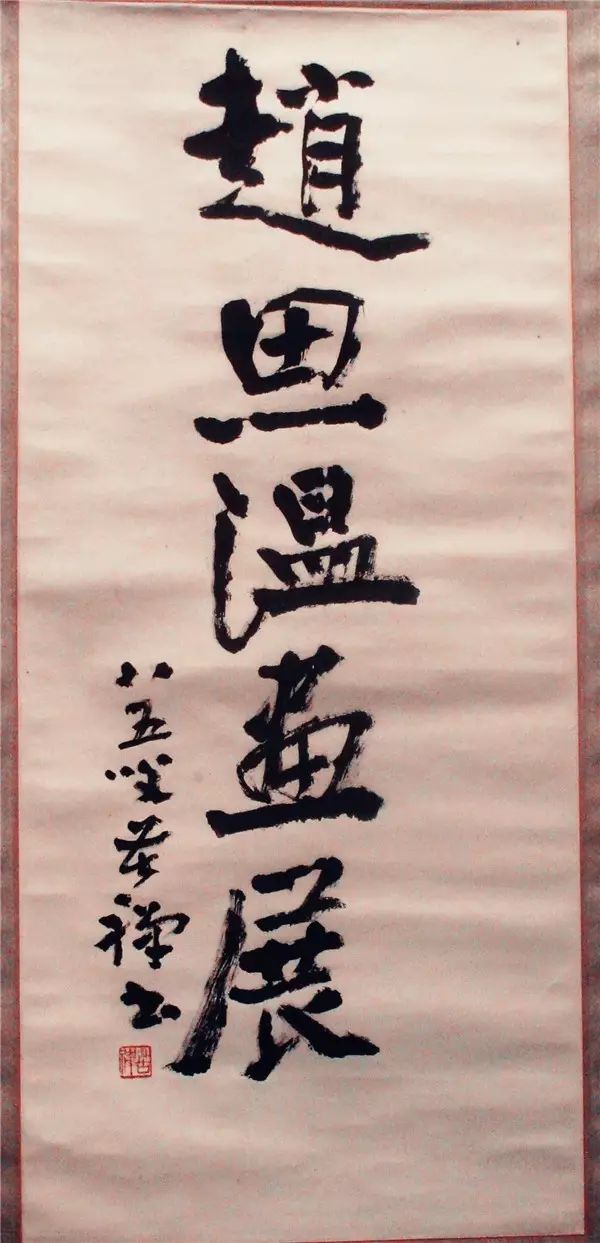 趙思温畫展
八五叟苦禪書